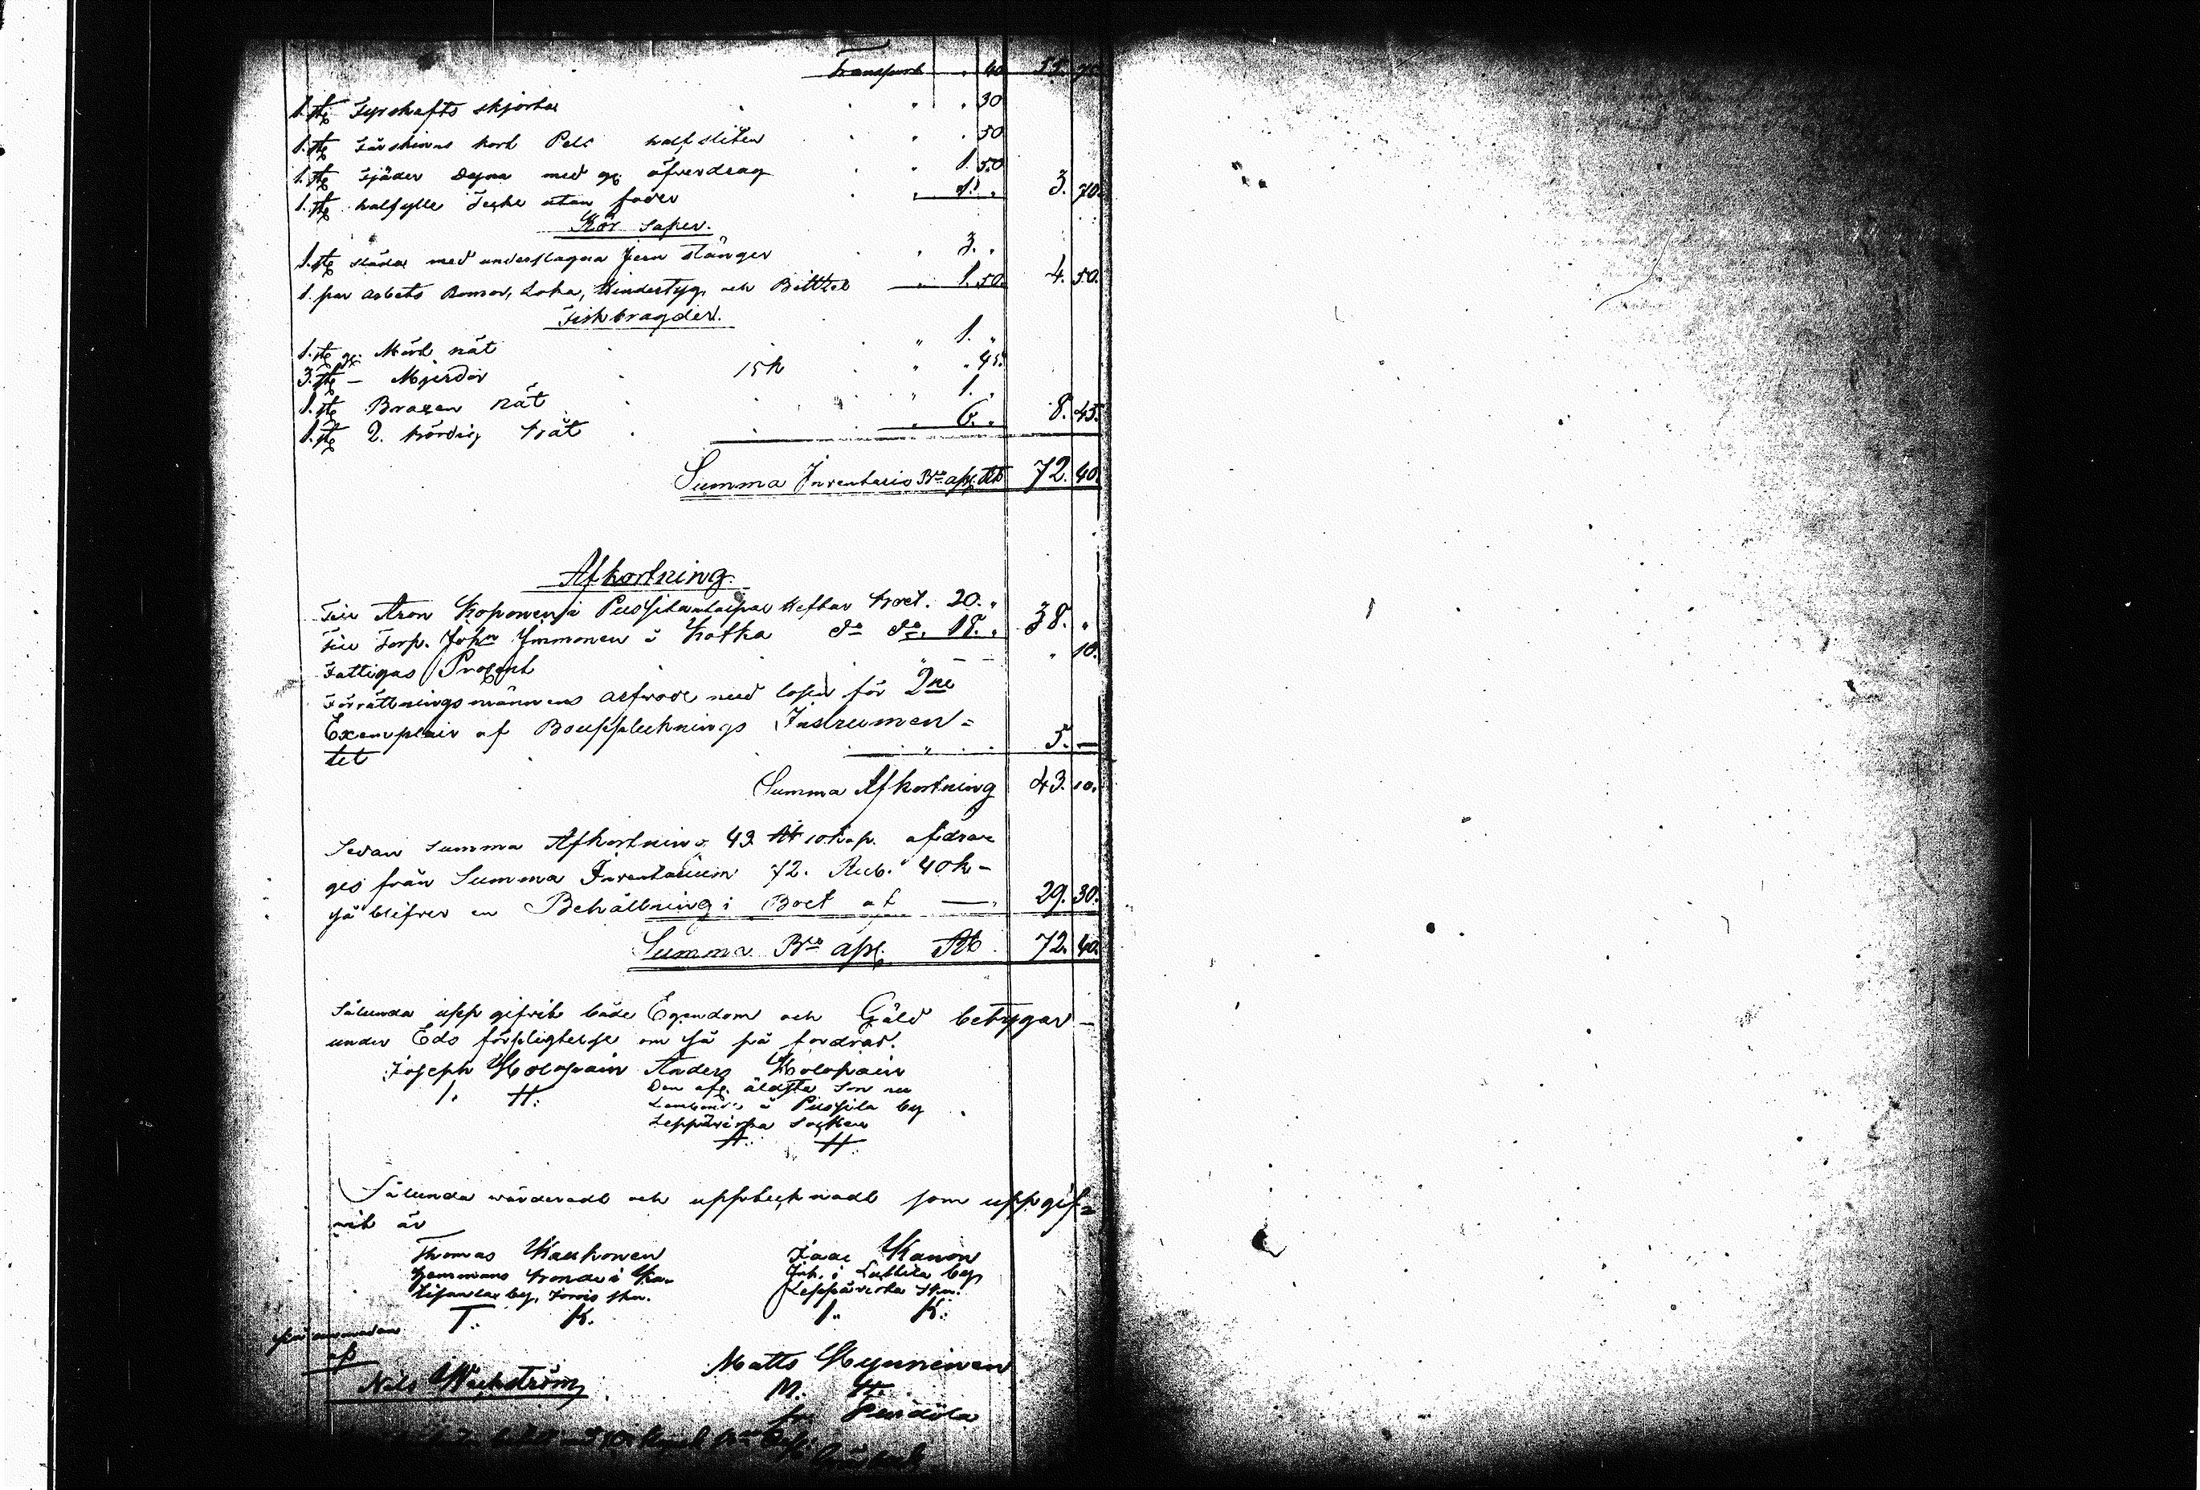 Transport " 40 55. 75.
1. st: Fyrskafts skjorta " " 30
1. st: Fårskinns kort Pels halfsliten " " 50
1. st: Fjäder Dyna med g: öfverdrag " 1. 50
1. st: halfylle Teske utan foder " 1. " 3. 70.
Kör saker.
1. st: släda med underslagna Jern stänger " 3. "
1. par arbets Bomor, Loka, Hindertyg, och Bittzel " 1. 50. 4. 50.
Fisk bragder.
1. st: g: Mört nät " 1. "
3. st: — Mjerdor 15 k " " 45.
1. st: Braxen nät " 1. "
1. st: 2. kördig nät " 6. " 8. 45.
Summa Inventario Bco ass: Rb 72. 40.
Afkortning.
Till Aron Koponen i Pussilanlaipal kestar Boet. 20. "
Till Torp. Johan Immonen i Kotka do do. 18. " 38. "
Fattigas Procent " " 10.
Förrättningsmännens arfwode med lösen för 2ne
Exemplair af Bouppteknings Instrumen=
tet " 5. —
Summa Afkortning 43. 10.
Sedan summa Afkortning 43 Rb 10 kop. afdra=
ges från Summa Inventarium 72. Rub. 40 k —
så blifver en Behållning i Boet af — 29. 30.
Summa Bco ass: Rb 72. 40.
Sålunda uppgifvit både Egendom och Gäld betygar —
under Eds förpligtelse om så på fordras.
Joseph Holopain Anders Holopain
J. H: Den afl. äldsta Son
å Pussila by
Leppävirta Socken
A: H:
Sålunda wärderadt och upptecknadt som uppgif=
vit är
Thomas Kauhonen Isaac Kanon
i Inh. i Luttila by
by, Jorois skn. Leppävirta Skn.
T: K. I: K:
af Matts Hynninen
Nils Wäckström M: H: